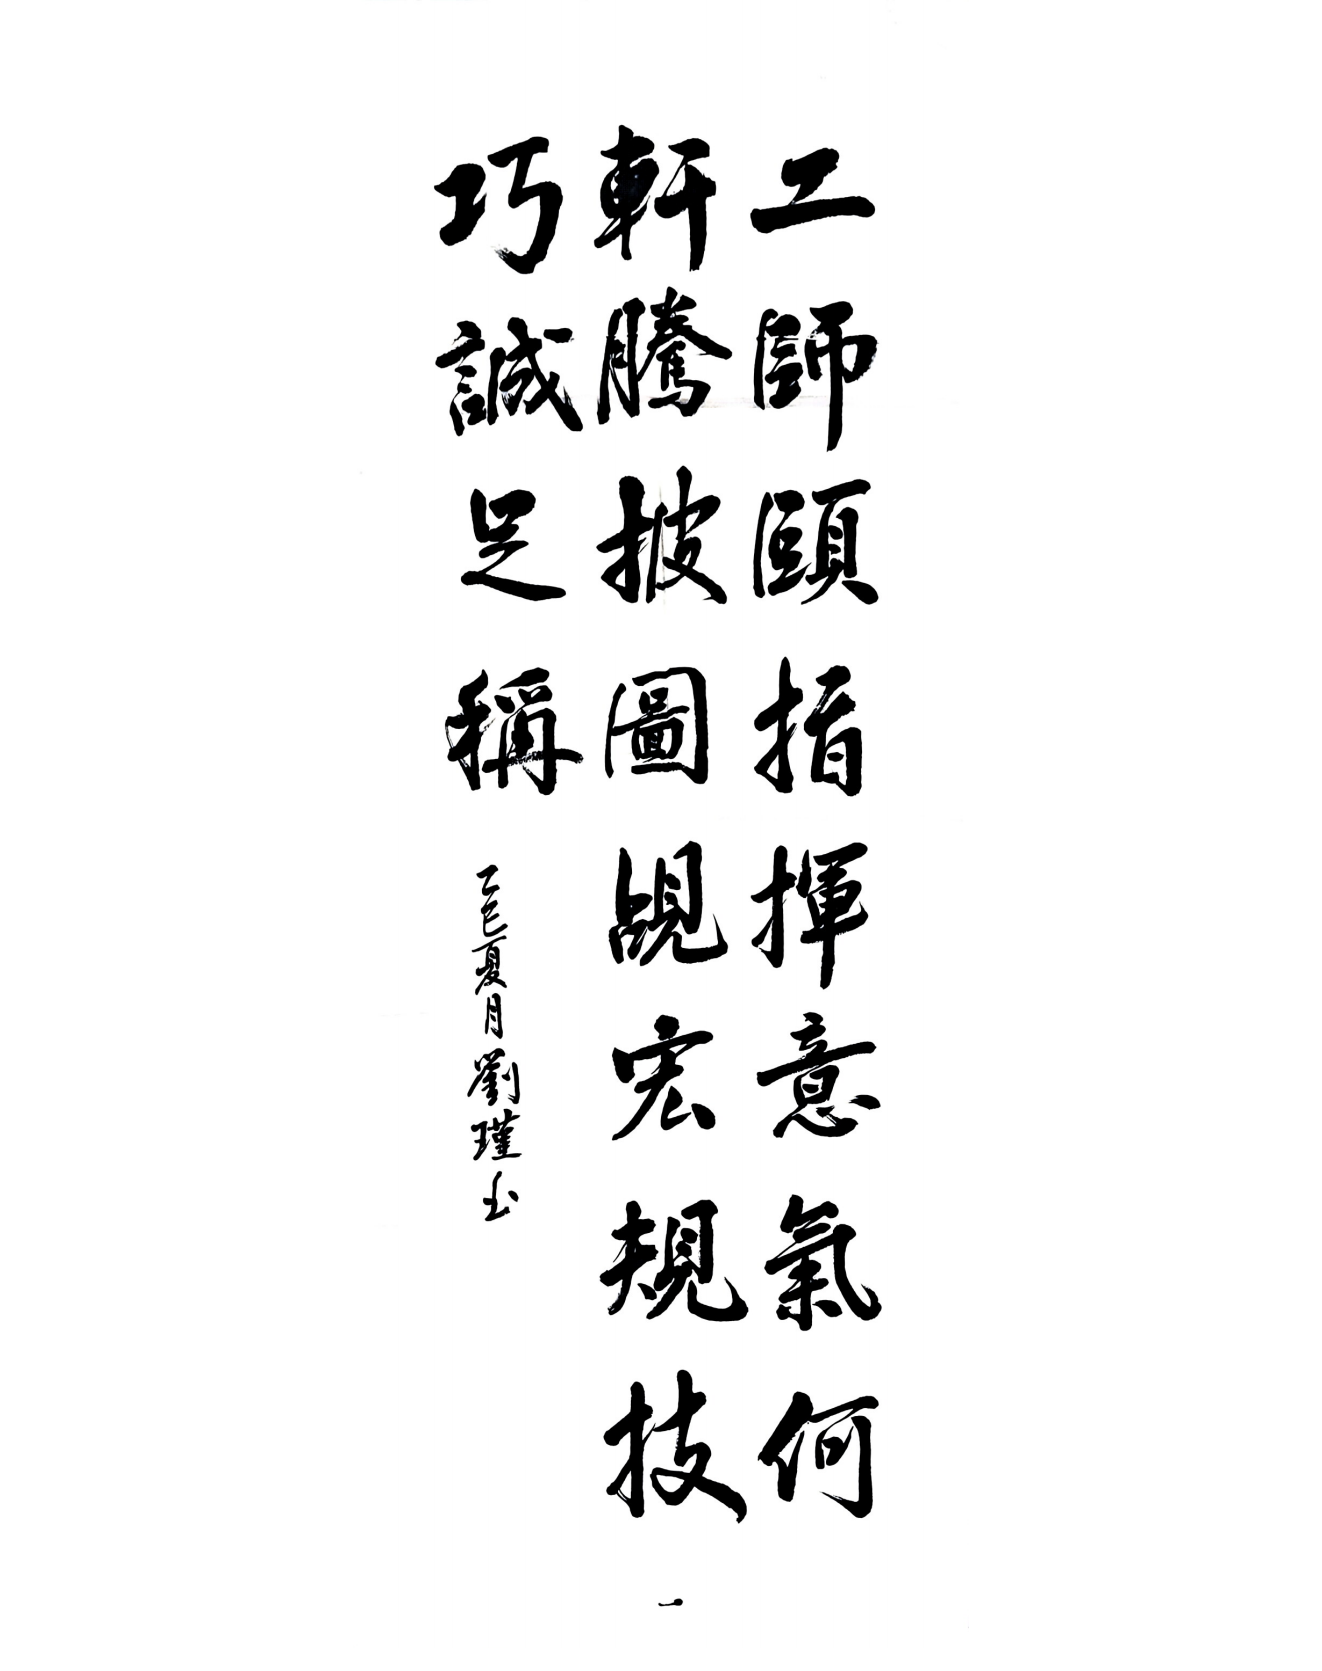 工師頤指揮意氣何
軒騰披圖覘宏規技
巧誠足稱
乙巳夏月劉瑾书
一